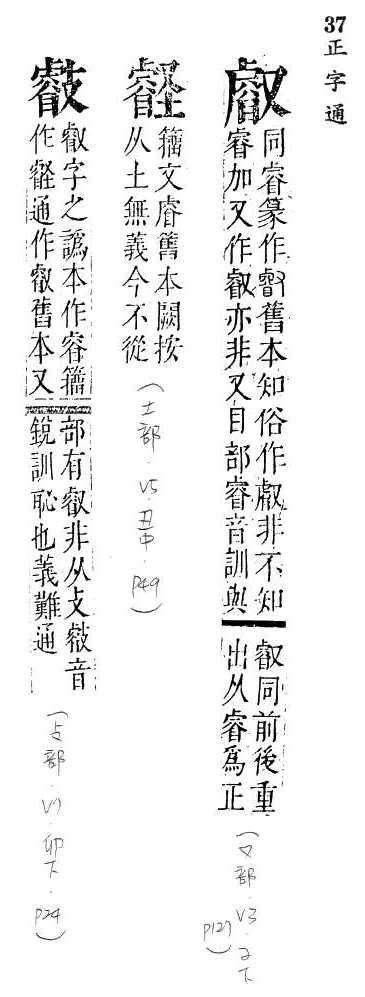 37
正字通
同睿篆作睿舊本知俗作叡非不知
睿加又作叡亦非又目部睿音訓與
叡同前後重
出从睿爲正
(又部·V3·子下 P127)
壡
籀文睿舊本闕按
从土無義今不從
(土部·V5·丑中·P49)
叡字之譌本作睿籀
作壡通作叡舊本又
部有叡非从攴 音
銳訓恥也義難通
部·V1·卯下·P24)